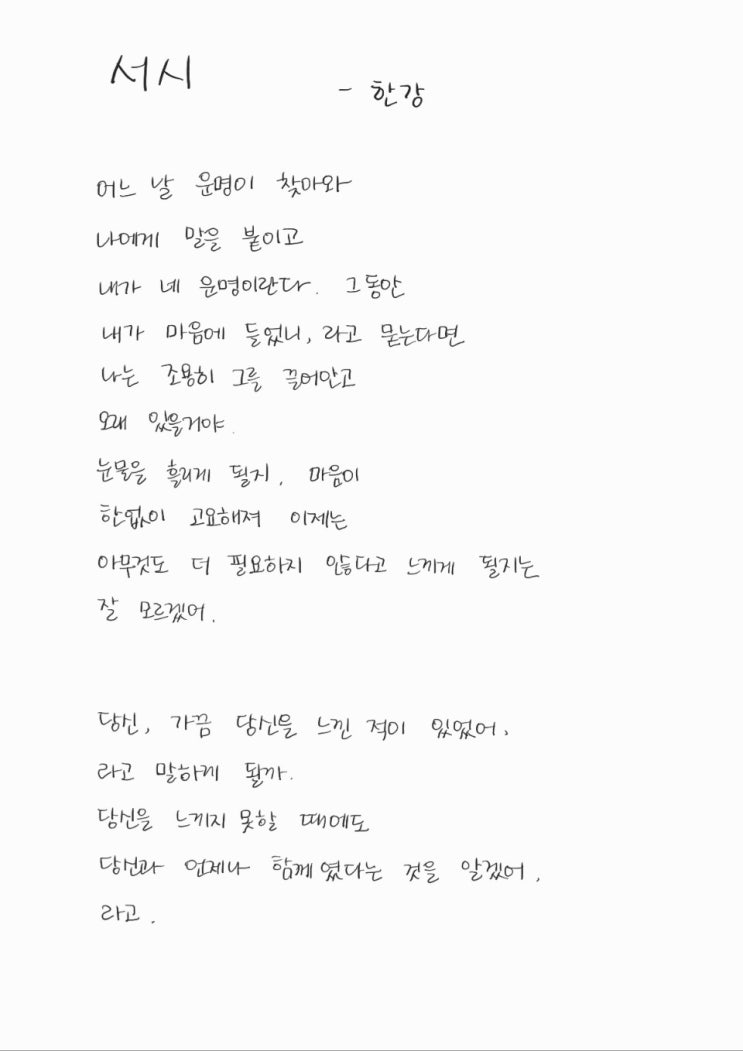 서시
- 한강
어느 날 운명이 찾아와
나에게 말을 붙이고
내가 네 운명이란다. 그동안
내가 마음에 들었니, 라고 묻는다면
나는 조용히 그를 끌어안고
오래 있을거야.
눈물을 흘리게 될지, 마음이
한없이 고요해져 이제는
아무것도 더 필요하지 않다고 느끼게 될지는
잘 모르겠어.
당신, 가끔 당신을 느낀 적이 있었어,
라고 말하게 될까.
당신을 느끼지 못할 때에도
당신과 언제나 함께였다는 것을 알겠어,
라고.